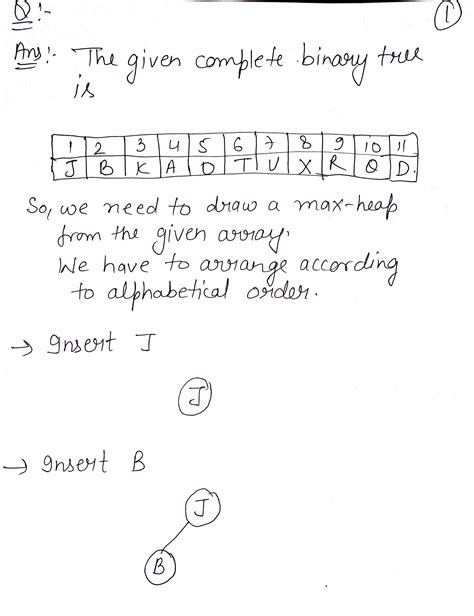 Q:-
1
Ans:- The given complete binary tree
is
1 2 3 4 5 6 7 8 9 10 11
J B K A O T U X R Q D.
So, we need to draw a max-heap
from the given array.
We have to arrange according
to alphabetical order.
→ Insert J
J
→ Insert B
J
B